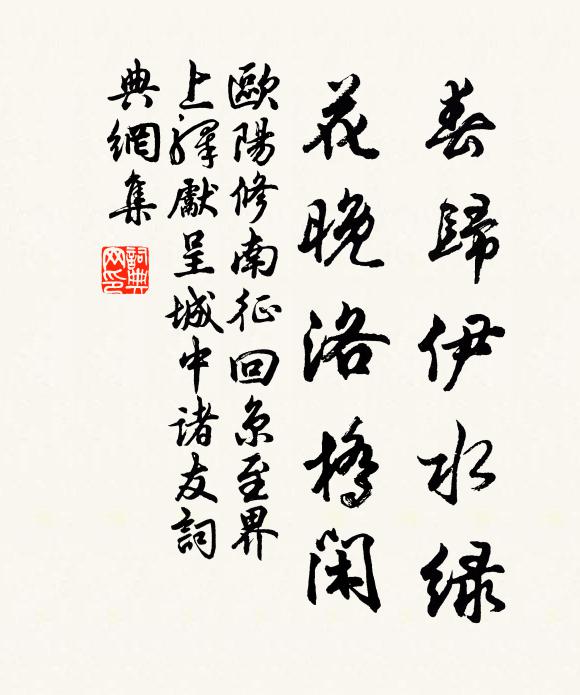 春歸伊水緑
花晚洛橋閑
歐陽修南征回京至界
上驛獻呈城中諸友詞
典網集
詞典網印